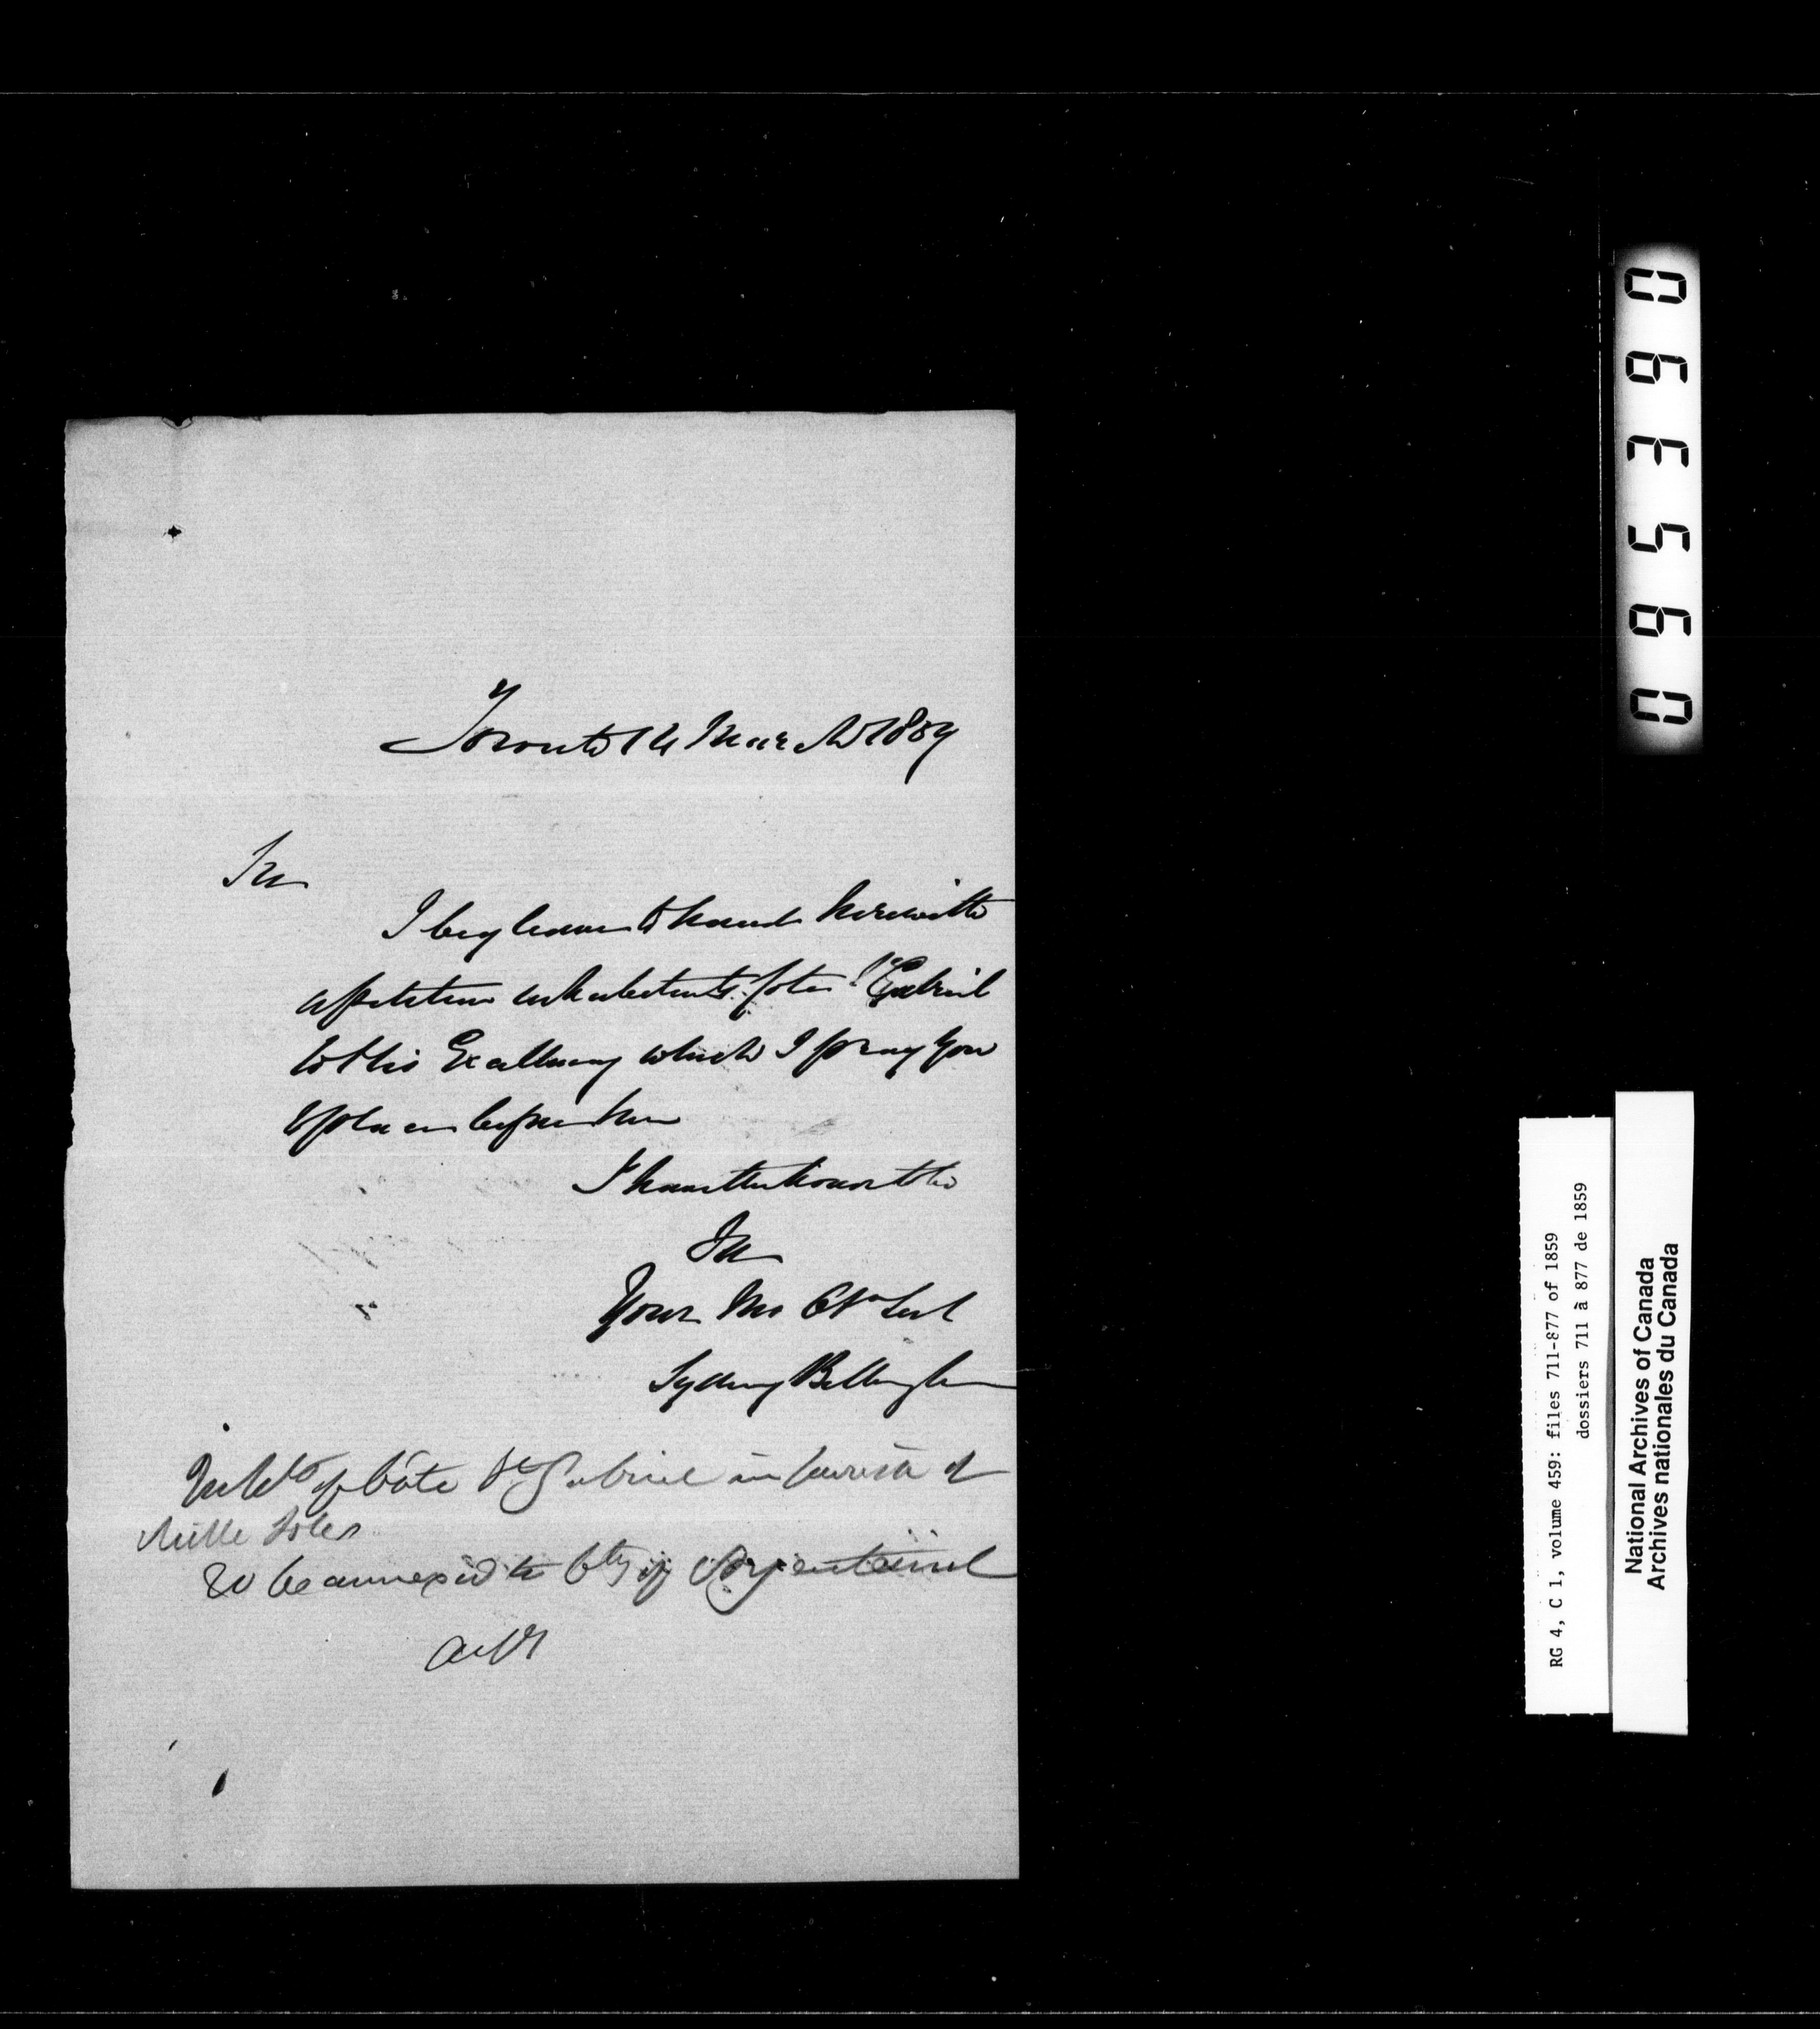 Toronto 14 March 1859
Sir
I beg leave to hand herewith
a petition inhabitants Cote St Gabriel
to His Excellency which I pray you
to place before him
I have the honor to be
Sir
Your Mo Obt Sert
Sydney Bellingham
Inhbts of Côte St Gabriel in parish of
Mille Isles
To be annexed to Cty of Argenteuil
065390
RG 4, C 1, volume 459: files 711-877 of 1859
dossiers 711 à 877 de 1859
National Archives of Canada
Archives nationales du Canada